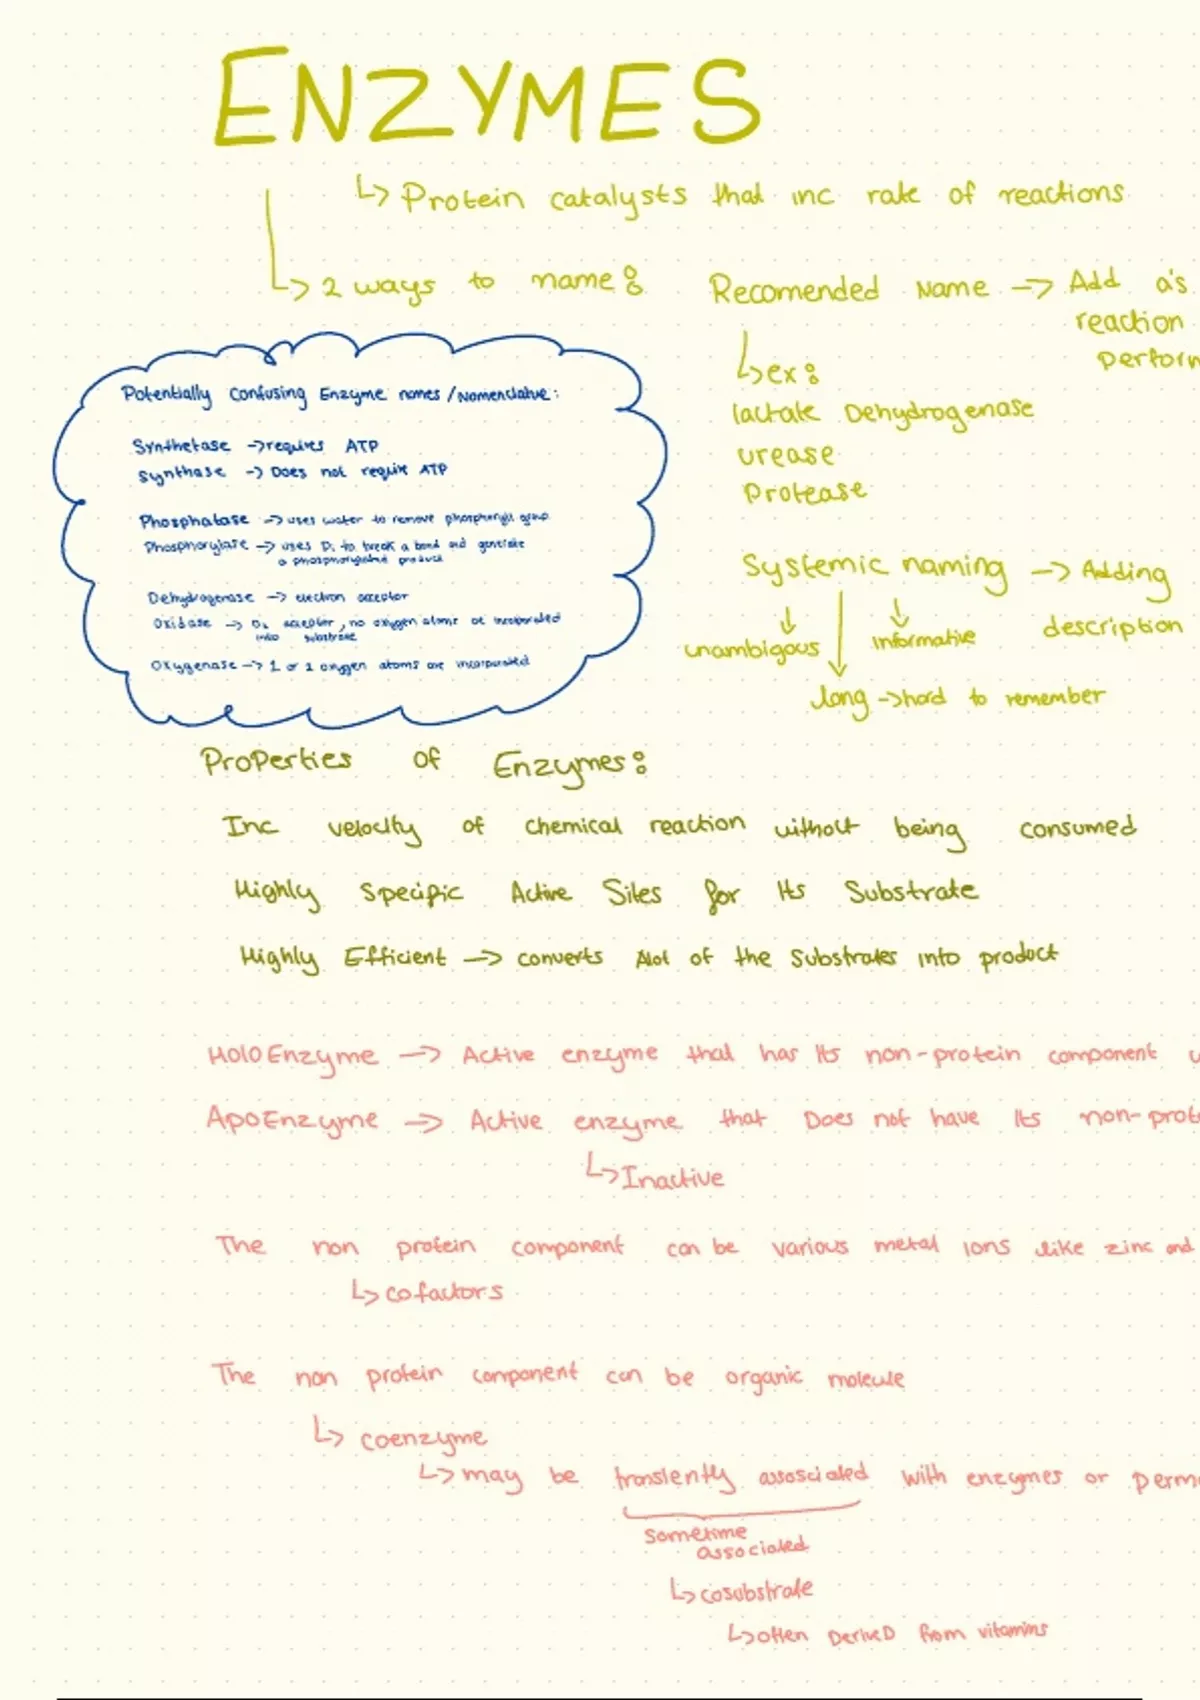 ENZYMES
↳ Protein catalysts that inc rate of reactions
↳ 2 ways to name:
Recomended Name → Add a's
reaction
perform
↳ ex:
lactate Dehydrogenase
urease
Protease
Potentially Confusing Enzyme names/Nomenclatue:
Synthetase → requires ATP
Synthase → Does not require ATP
Phosphatase → uses water to remove phosphoryl group
Phosphorylase → uses Pi to break a bond and generate
a phosphorylated product
Dehydrogenase → electron acceptor
Oxidase → O2 acceptor, no oxygen atoms are incorporated
into substrate
Oxygenase → 1 or 2 oxygen atoms are incorporated
Systemic naming → Adding
description
unambigous
informative
long → hard to remember
Properties of Enzymes:
Inc velocity of chemical reaction without being consumed
Highly Specific Active Sites for Its Substrate
Highly Efficient → converts Alot of the Substrates into product
HoloEnzyme → Active enzyme that has Its non-protein component
ApoEnzyme → Active enzyme that Does not have Its non-prot
↳ Inactive
The non protein component can be various metal ions like zinc and
↳ cofactors
The non protein component can be organic molecule
↳ coenzyme
↳ may be transiently associated with enzymes or perm
sometime
associated
↳ cosubstrate
↳ often DeriveD from vitamins